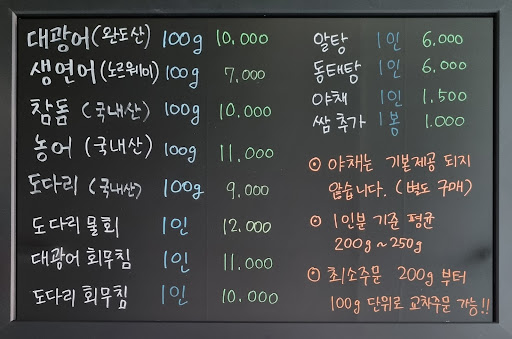 대광어(완도산) 100g 10,000
생연어(노르웨이) 100g 7,000
참돔 (국내산) 100g 10,000
농어 (국내산) 100g 11,000
도다리 (국내산) 100g 9,000
도다리 물회 1인 12,000
대광어 회무침 1인 11,000
도다리 회무침 1인 10,000
알탕 1인 6,000
동태탕 1인 6,000
야채 1인 1,500
쌈 추가 1봉 1,000
⊙ 야채는 기본제공 되지
않습니다. (별도 구매)
⊙ 1인분 기준 평균
200g~250g
⊙ 최소주문 200g 부터
100g 단위로 교차주문 가능!!